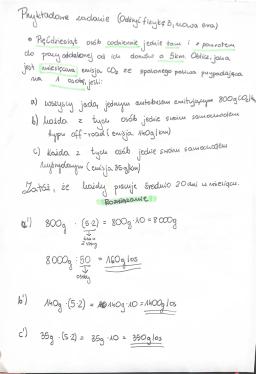 Przykładowe zadanie (Odkryć fizykę 3, nowa era)
• Pięćdziesiąt osób codziennie jedzie tam i z powrotem
do pracy oddalonej od ich domów o 5km. Oblicz, jaka
jest miesięczna emisja CO₂ ze spalonego paliwa przypadająca
na 1 osobę, jeśli:
a) wszyscy jadą jednym autobusem emitującym 800g CO₂/km
b) każda z tych osób jedzie swoim samochodem
typu off-road (emisja 140g/km)
c) każda z tych osób jedzie swoim samochodem
hybrydowym (emisja 35g/km)
Załóż, że każdy pracuje średnio 20 dni w miesiącu.
Rozwiązanie
a') 800g · (5·2) = 800g · 10 = 8000g
8000g : 50 = 160g/os
osoby
b') 140g · (5·2) = 140g · 10 = 1400g/os
c') 35g · (5·2) = 35g · 10 = 350g/os